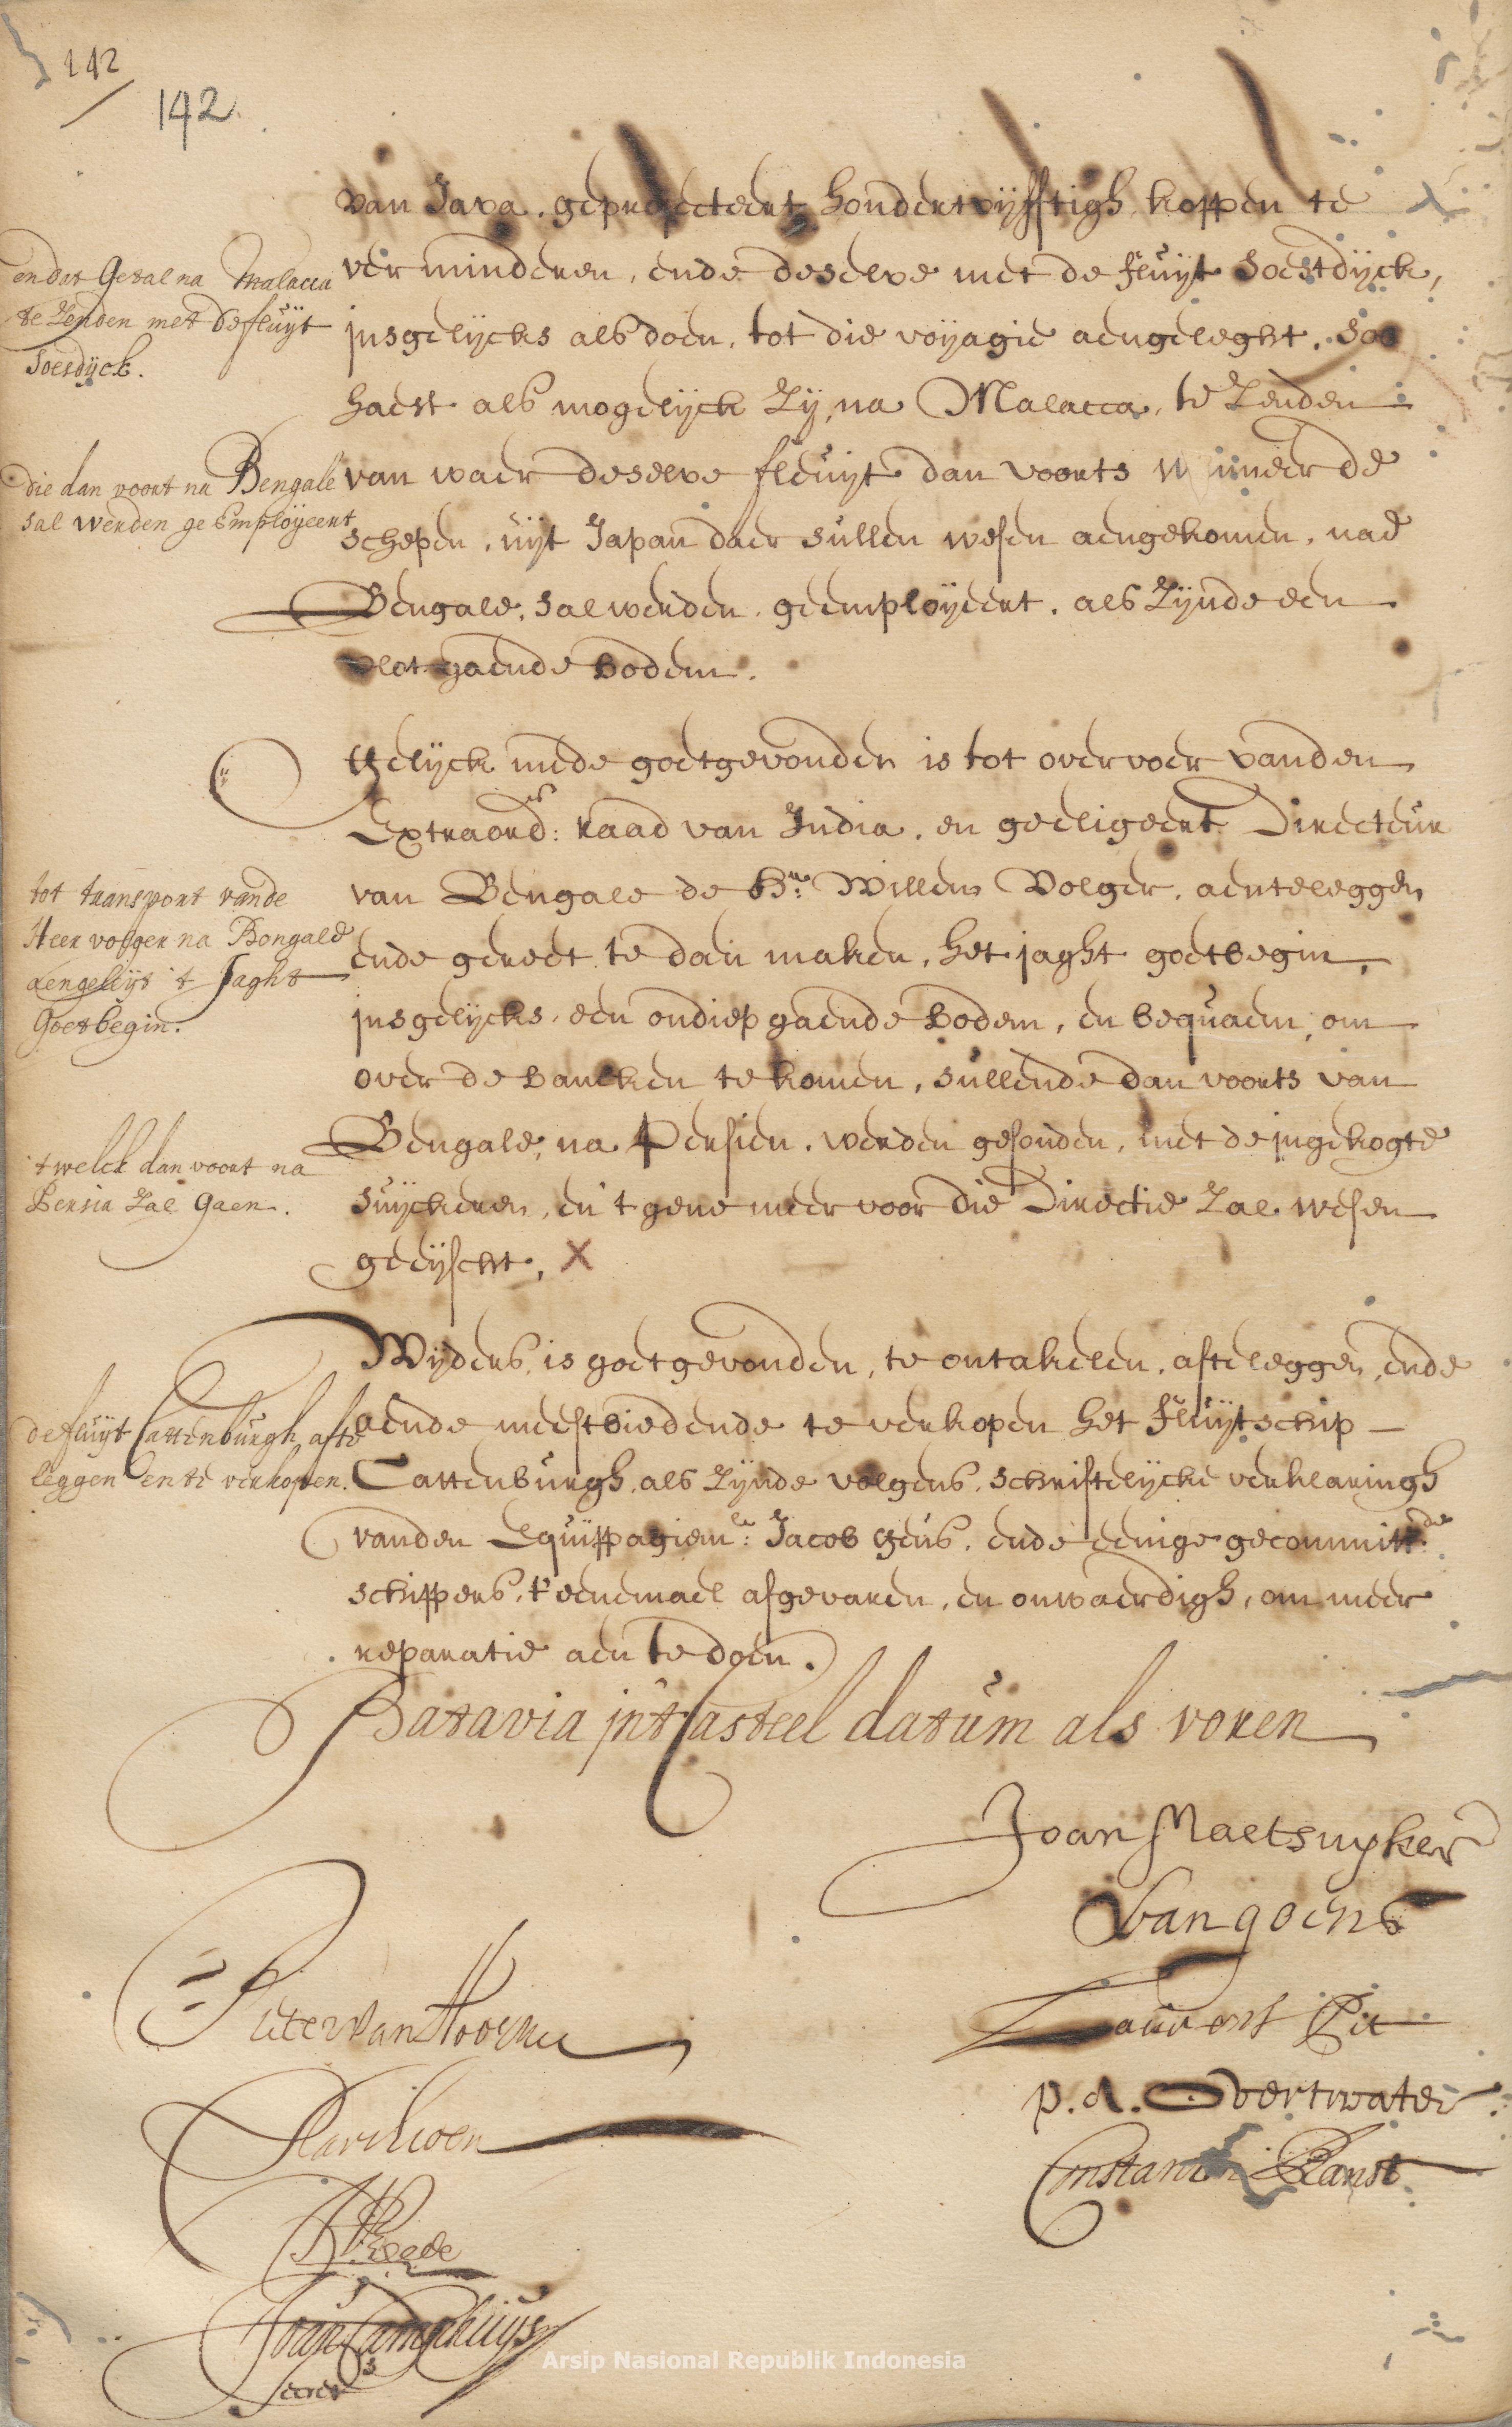 142
142.
van Java, geprojecteert hondertvijfftigh koppen te
verminderen, ende deselve met de fluijt Soestdijck,
jnsgelijcks als doen, tot die voijagie aengeleght, soo
haest als mogelijck Zij, na Malacca, te Zenden
van waer deselve fleuijt dan voorts wanneer de
schepen, uijt Japan daer sullen wesen aengekomen, nae
Bengale, sal werden, geemploijeert, als Zijnde een
vlot gaende bodem.
endat Getal na Malacca
te Zenden met de fluijt
Soesdijck.
die dan voort na Bengale
sal werden geEmploijeert
Gelijck mede goetgevonden is tot overvoer vanden
Extraord:es raad van India, en geeligeert Directeur
van Bengale de Hr. Willem Volger, aenteleggen
ende gereet te doen maken, het jaght goetbegin,
jnsgelijcks, een ondiep gaende bodem, en bequaem, om
over de bancken te komen, sullende dan voorts van
Bengale, na Persien, werden gesonden, met de jngekogte
suijckeren, en 't gene meer voor die Directie Zal wesen
geeijscht, X
tot transport vande
Heer volger na Bengale
aengeleijt 't Jaght
Goetbegin.
't welck dan voort na
Persia Zal Gaen.
Wijders, is goetgevonden, te ontakelen, afteleggen, ende
aende meestbiedende te verkopen het fluijtschip
Cattenburgh, als Zijnde volgens, schriftelijcke verklaringh
vanden Equippagiem:r Jacob Gens, ende eenige gecommitt:de
schippers, t' eenemael afgevaren, en onwaerdigh, om meer
reparatie aen te doen.
de fluijt Cattenburgh afte
leggen en te verkopen.
Batavia jn't Casteel datum als voren
Joan Maetsuyker
V an goens
Pieter van Hoorn
Laurens Pit
P. A. Overtwater
Constantin Ranst
Joan Camphuijs
Secrets
Arsip Nasional Republik Indonesia